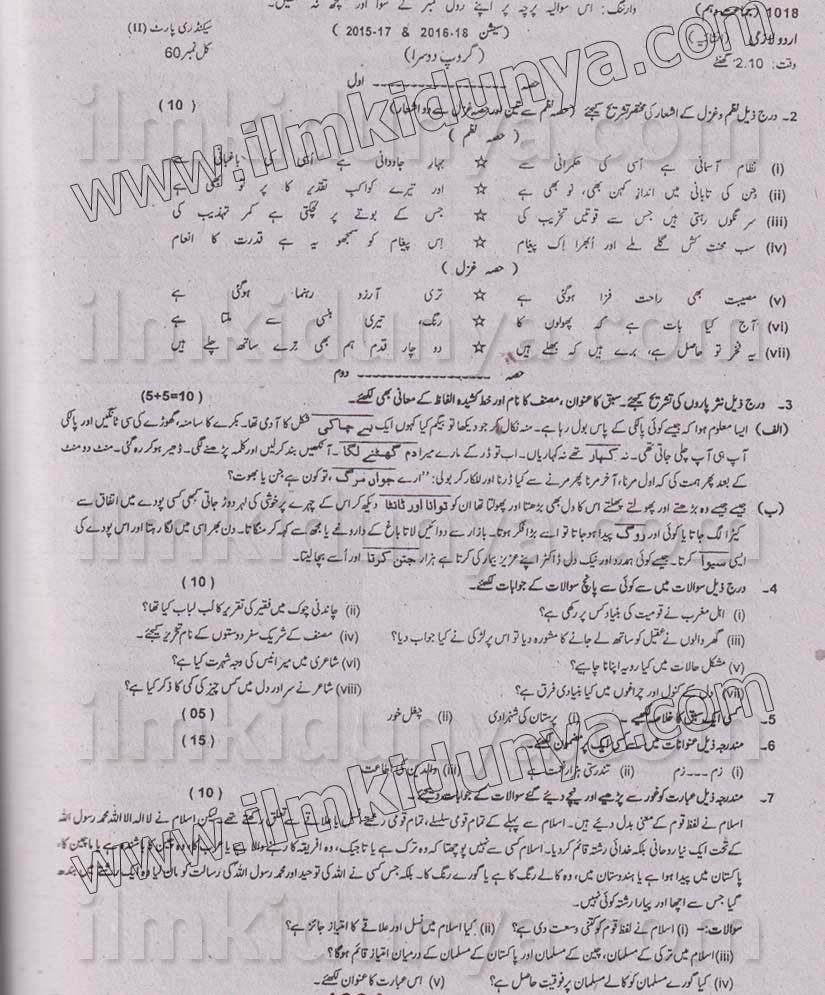 1018 وارننگ: اس سوالیہ پرچہ پر اپنے رول نمبر کے سوا اور کچھ نہ
اردو لازمی (سیشن 2016-18 & 2015-17) سیکنڈری پارٹ (II)
وقت: 2.10 گھنٹے (گروپ دوسرا) کل نمبر 60
حصہ اول
2۔ درج ذیل نظم و غزل کے اشعار کی مختصر تشریح کیجئے (حصہ نظم سے تین اور حصہ غزل سے دو اشعار) (10)
(حصہ نظم)
(i) نظام آسمانی ہے اُسی کی حکمرانی سے ☆ بہار جاودانی ہے اُسی کی باغبانی سے
(ii) جن کی تابانی میں اندازِ کہن بھی، نو بھی ہے ☆ اور تیرے کواکب تقدیر کا پر تو بھی ہے
(iii) سرنگوں رہتی ہیں جس سے قوتیں تخریب کی ☆ جس کے بوتے پر لچکتی ہے کمر تہذیب کی
(iv) سب محنت کش گلے ملے اور اُبھرا اِک پیغام ☆ اِس پیغام کو سمجھو یہ ہے قدرت کا انعام
(حصہ غزل)
(v) مصیبت بھی راحت فزا ہوگئی ہے ☆ تری آرزو رہنما ہوگئی ہے
(vi) آج کیا بات ہے کہ پھولوں کا ☆ رنگ، تیری ہنسی سے ملتا ہے
(vii) یہ فخر تو حاصل ہے، برے ہیں کہ بھلے ہیں ☆ دو چار قدم ہم بھی ترے ساتھ چلے ہیں
حصہ دوم
3۔ درج ذیل نثر پاروں کی تشریح کیجئے۔ سبق کا عنوان، مصنف کا نام اور خط کشیدہ الفاظ کے معانی بھی لکھئے۔ (5+5=10)
(الف) ایسا معلوم ہوا کہ جیسے کوئی پالکی کے پاس بول رہا ہے۔ منہ نکال کر جو دیکھا تو بیگم کیا کہوں ایک بے جا کی شکل کا آدمی تھا۔ بکرے کا سا منہ، گھوڑے کی سی ٹانگیں اور پالکی
آپ ہی آپ چلی جاتی تھی۔ نہ کہار تھے نہ کہاریاں۔ اب تو ڈر کے مارے میرا دم گھٹنے لگا۔ آنکھیں بند کر لیں اور کلمہ پڑھنے لگی۔ ڈھیر ہو کر رہ گئی۔ منٹ دو منٹ
کے بعد پھر ہمت کی کہ اول مرنا، آخر مرنا پھر مرنے سے کیا ڈرنا اور للکار کر بولی: "ارے جواں مرگ، تو کون ہے جن یا بھوت؟
(ب) جیسے جیسے وہ بڑھتے اور پھولتے پھلتے اس کا دل بھی بڑھتا اور پھولتا تھا ان کو توانا اور ٹانٹا دیکھ کر اس کے چہرے پر خوشی کی لہر دوڑ جاتی کبھی کسی پودے میں اتفاق سے
کیڑا لگ جاتا یا کوئی اور روگ پیدا ہو جاتا تو اسے بڑا فکر ہوتا۔ بازار سے دوائیں لاتا باغ کے داروغے یا مجھ سے کہہ کر منگاتا۔ دن بھر اسی میں لگا رہتا اور اس پودے کی
ایسی سیوا کرتا۔ جیسے کوئی ہمدرد اور نیک دل ڈاکٹر اپنے عزیز بیمار کی کرتا ہے ہزار جتن کرتا اور اُسے بچا لیتا۔
4۔ درج ذیل سوالات میں سے کوئی سے پانچ سوالات کے جوابات لکھئے۔ (10)
(i) اہل مغرب نے قومیت کی بنیاد کس پر رکھی ہے؟ (ii) چاندنی چوک میں فقیر کی تقریر کا لب لباب کیا تھا؟
(iii) گھر والوں نے عقیل کو ساتھ لے جانے کا مشورہ دیا تو اس پر لڑکی نے کیا جواب دیا؟ (iv) مصنف کے شریک سفر دوستوں کے نام تحریر کیجئے۔
(v) مشکل حالات میں کیا رویہ اپنانا چاہیے؟ (vi) شاعری میں میر انیس کی وجہ شہرت کیا ہے؟
(vii) دل کے کنول اور چراغوں میں کیا بنیادی فرق ہے؟ (viii) شاعر نے سر اور دل میں کس چیز کی کمی کا ذکر کیا ہے؟
5۔ کسی ایک سبق کا خلاصہ لکھیے۔ (i) پرستان کی شہزادی (ii) چغل خور (05)
6۔ مندرجہ ذیل عنوانات میں سے کسی ایک پر مضمون لکھئے۔ (15)
(i) زم۔۔۔زم (ii) تندرستی ہزار نعمت ہے (iii) والدین کی اطاعت
7۔ مندرجہ ذیل عبارت کو غور سے پڑھیے اور نیچے دیئے گئے سوالات کے جوابات دیجئے۔ (10)
اسلام نے لفظ قوم کے معنی بدل دیے ہیں۔ اسلام سے پہلے کے تمام قومی سلسلے، تمام قومی رشتے نسل یا علاقے سے تعلق رکھتے تھے۔ لیکن اسلام نے لا الہ الا اللہ محمد رسول اللہ
کے تحت ایک نیا روحانی بلکہ خدائی رشتہ قائم کر دیا۔ اسلام کسی سے نہیں پوچھتا کہ وہ ترک ہے یا تاجیک، وہ افریقہ کا رہنے والا ہے یا عرب کا، وہ چین کا باشندہ ہے یا ماچین کا،
پاکستان میں پیدا ہوا ہے یا ہندوستان میں، وہ کالے رنگ کا ہے یا گورے رنگ کا۔ بلکہ جس کسی نے اللہ کی توحید اور محمد رسول اللہ کی رسالت کو مان لیا وہ ایک رشتے میں بندھ
گیا جس سے اچھا اور پیارا رشتہ کوئی نہیں۔
سوالات:۔ (i) اسلام نے لفظ قوم کو کتنی وسعت دی ہے؟ (ii) کیا اسلام میں نسل اور علاقے کا امتیاز جائز ہے؟
(iii) اسلام میں ترکی کے مسلمان، چین کے مسلمان اور پاکستان کے مسلمان کے درمیان امتیاز قائم ہوگا؟
(iv) کیا گورے مسلمان کو کالے مسلمان پر فوقیت حاصل ہے؟ (v) اس عبارت کا عنوان لکھئے۔
www.ilmkidunya.com
www.ilmkidunya.com
ilmkidunya.com
ilmkidunya.com
ilmkidunya.com
ilmkidunya.com
ilmkidunya.com